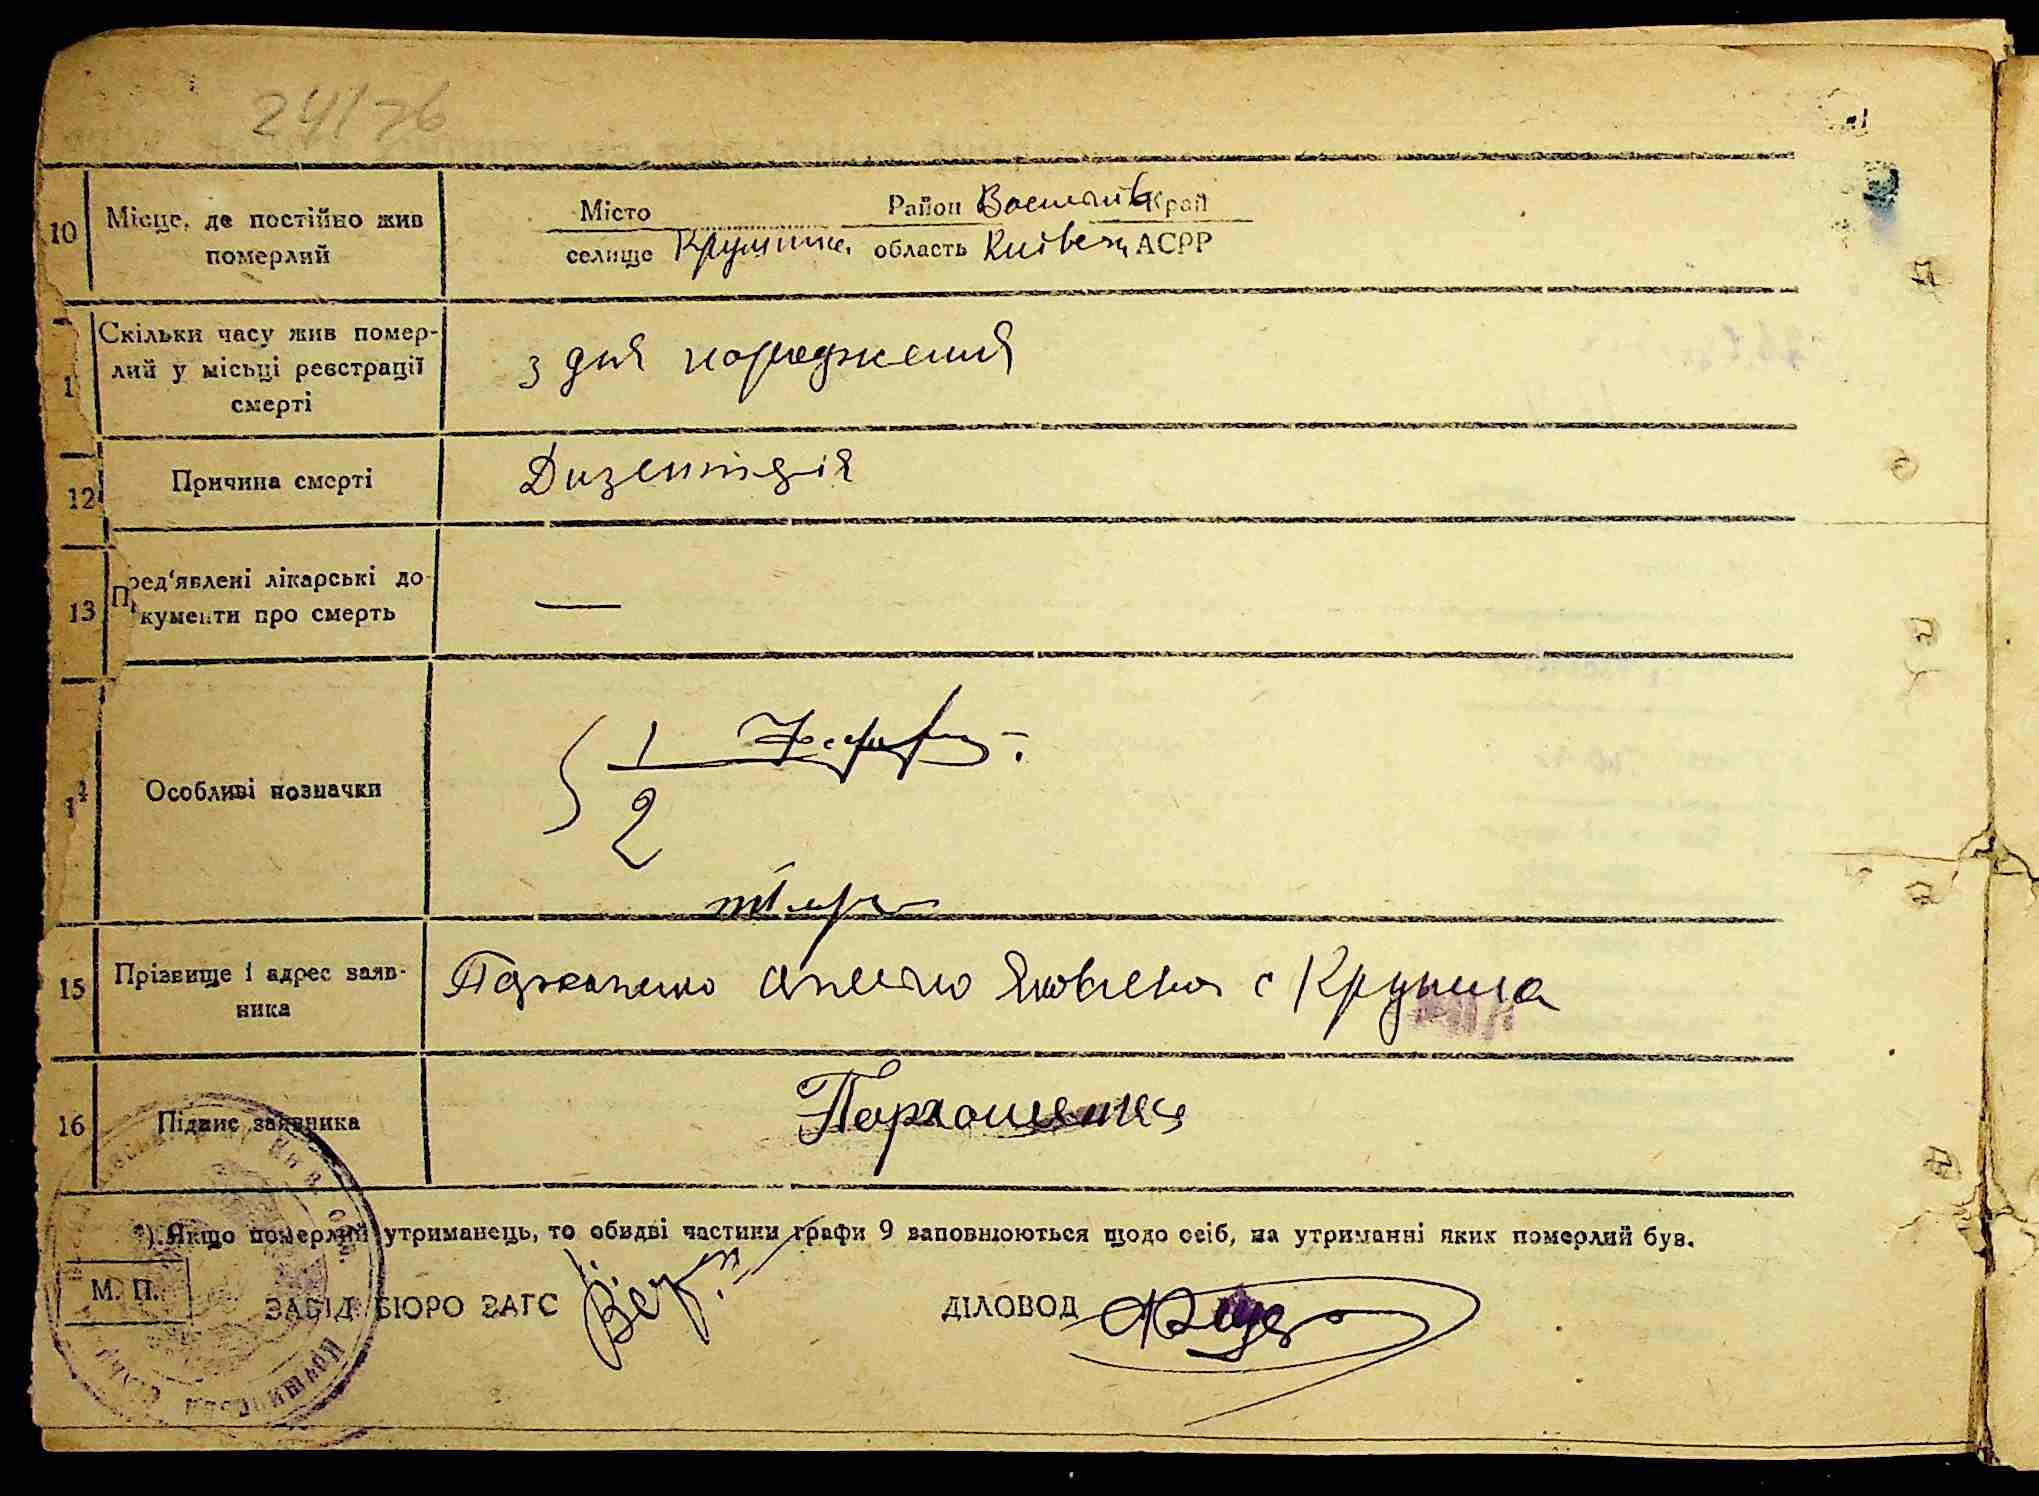 24/76
10 Місце, де постійно жив померлий
Місто Район Васильків Край
селище область Київськ АСРР
1 Скільки часу жив помер-
лий у місьці реєстрації
смерті
з дня народження
12 Причина смерті
Дизентерія
13 Пред'явлені лікарські до-
кументи про смерть
—
14 Особливі позначки
1
2
15 Прізвище і адрес заяв-
ника
Яковлевна с
16 Підпис заявника
Пархоменко
*) Якщо померлий утриманець, то обидві частини графи 9 заповнюються щодо осіб, на утриманні яких померлий був.
М. П.
ЗАВІД БЮРО ЗАГС
ДІЛОВОД